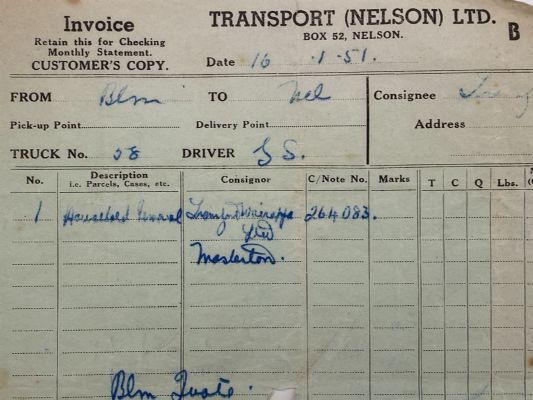 Invoice
Retain this for Checking
Monthly Statement.
CUSTOMER'S COPY.
TRANSPORT (NELSON) LTD.
BOX 52, NELSON.
B
Date 16 . 1 . 51.
FROM Blm TO Nel
Consignee
Pick-up Point Delivery Point
Address
TRUCK No. 58 DRIVER S.
No. Description Consignor C/Note No. Marks T C Q Lbs.
i.e. Parcels, Cases, etc.
1 Household Removal 264083.
Ltd
Masterton.
Blm Quote.